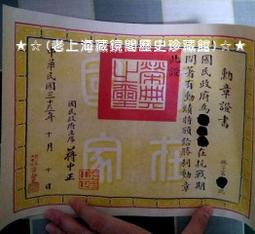 ★☆(老上海藏鏡閣歷史珍藏館)☆★
勳章證書
國民政府為●●●在抗戰期
間著有勳績特頒給勝利勳章
此證
國民政府主席 蔣中正
中華民國三十五年十月十日
榮典之璽
國家